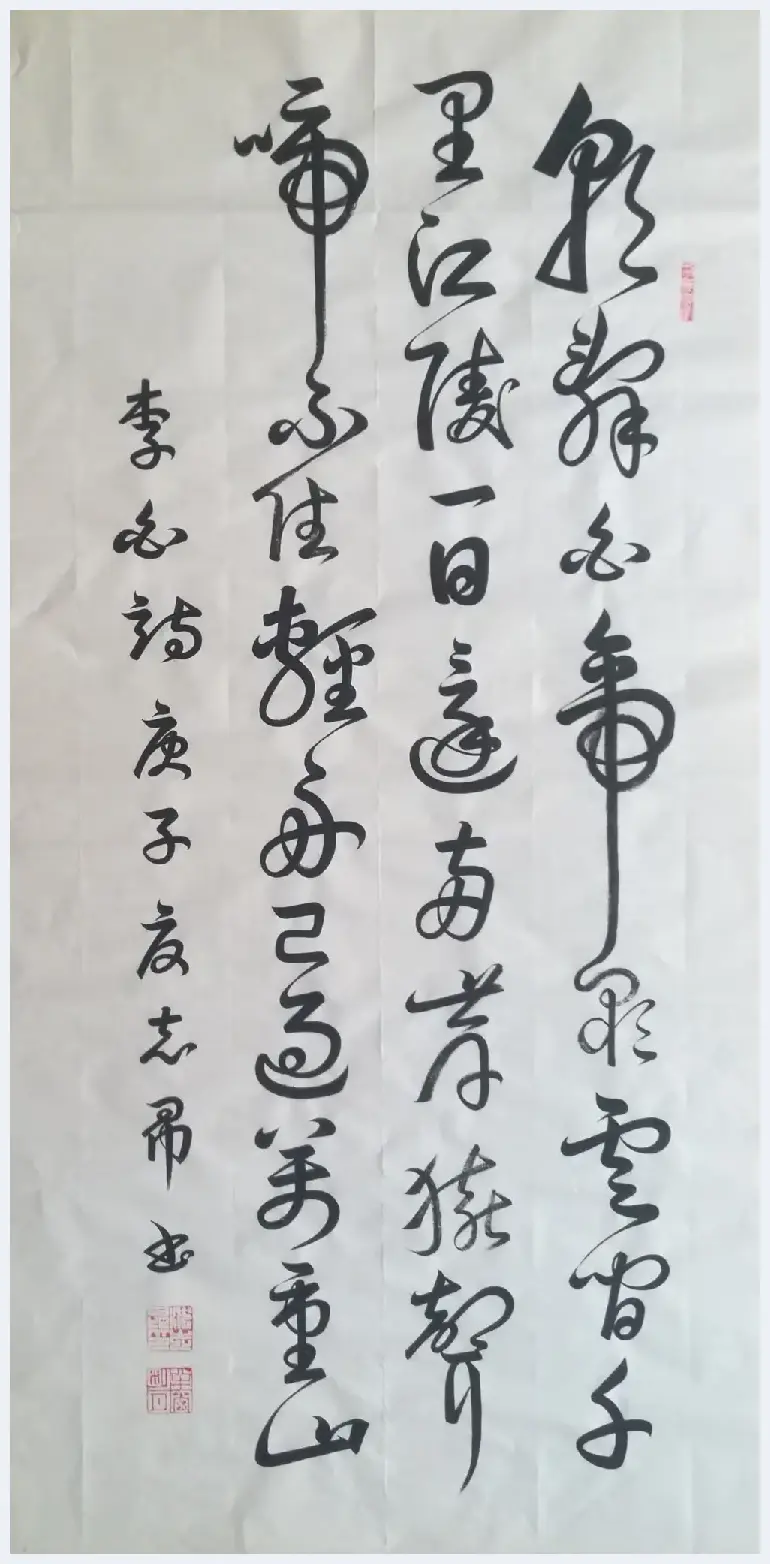 朝辭白帝彩雲間千
里江陵一日還兩岸猿聲
啼不住輕舟已過萬重山
李白詩庚子夏志書